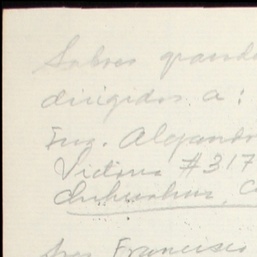 Sobres grande
dirigidos a:
Ing. Alejandro
Victoria #317
Chihuahua, C
Francisco